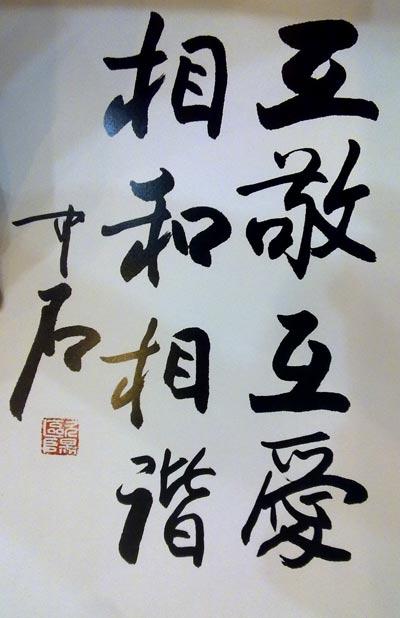 互敬互愛
相和相谐
中石